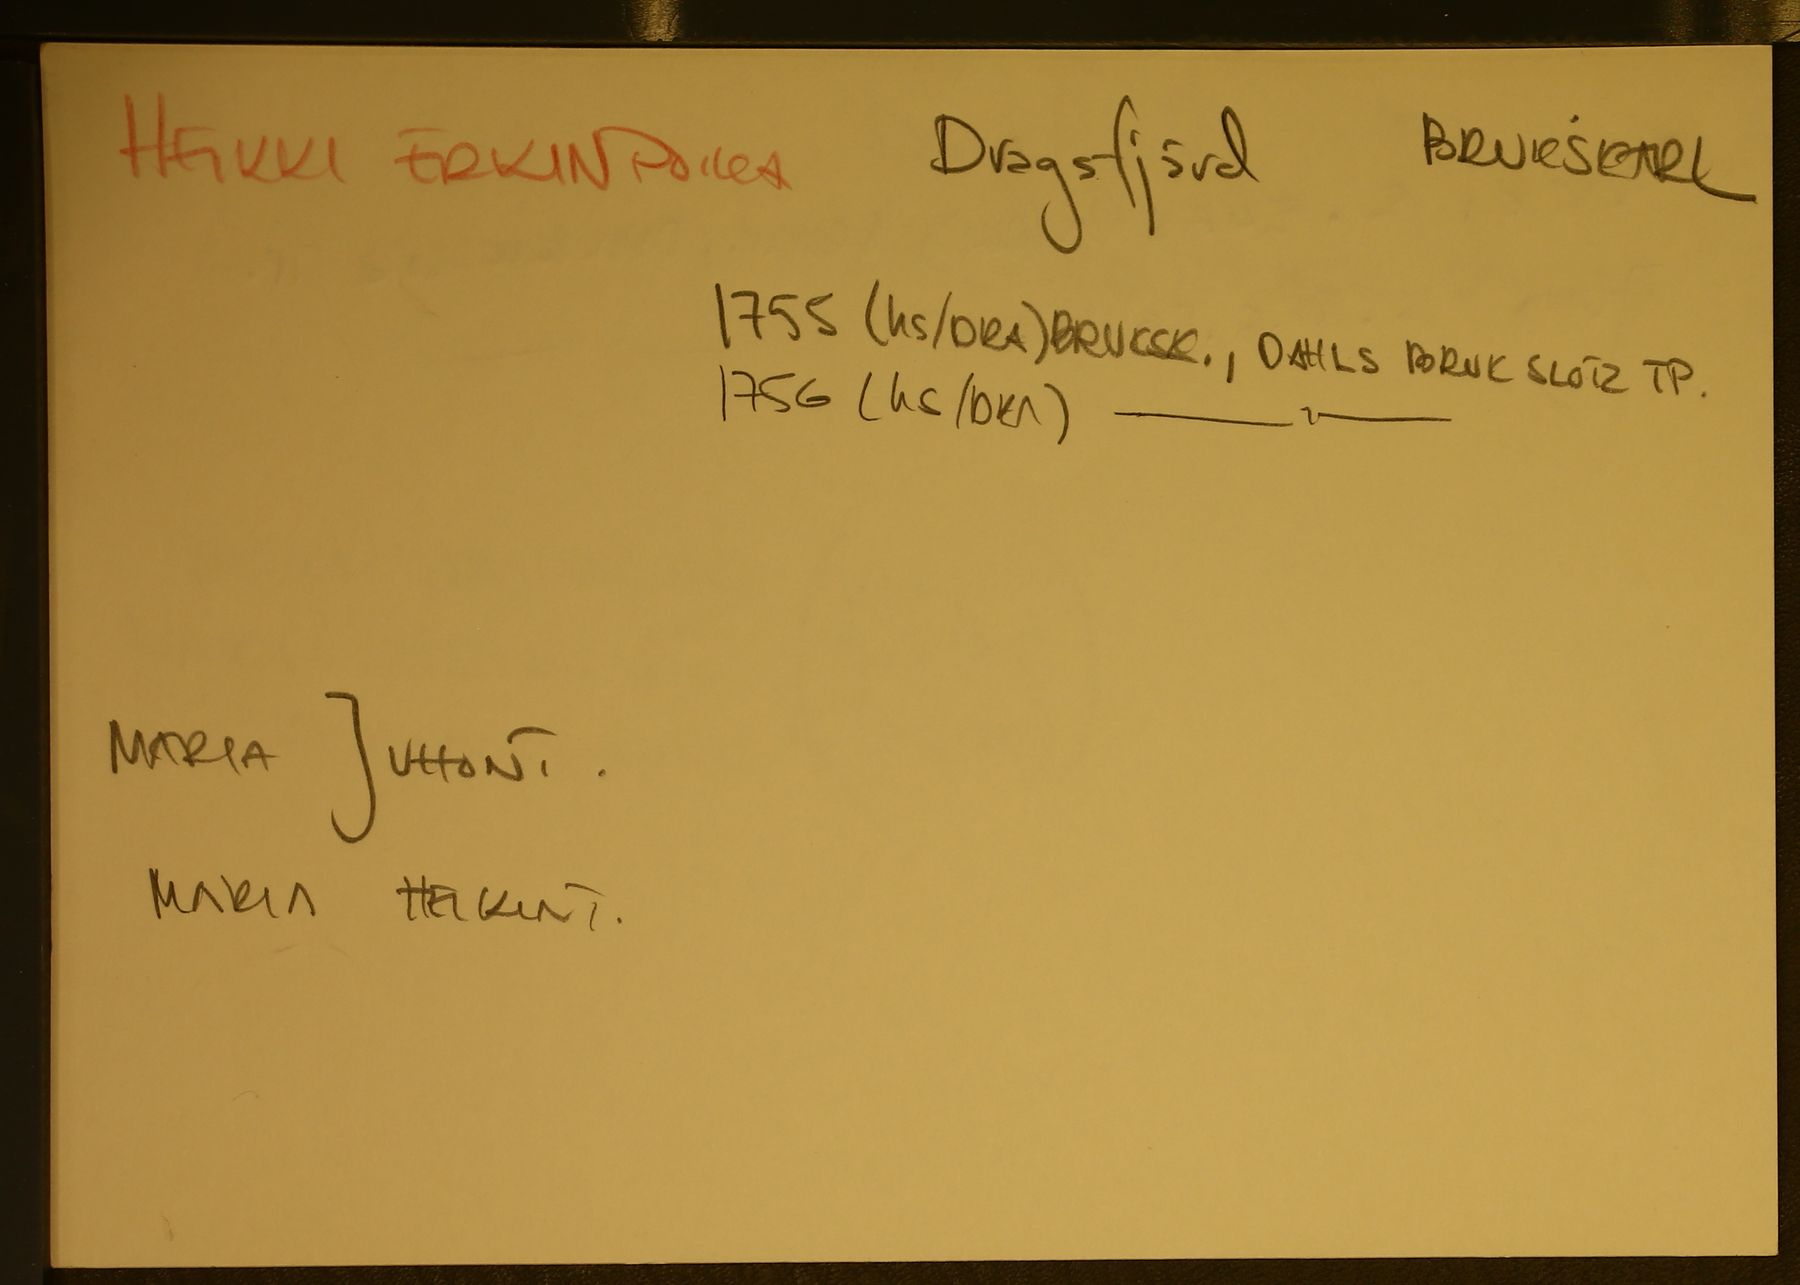 HEIKKI ERKINPOIKA Dragsfjärd BRUKSKARL
1755 (hs/DRA) BRUKSK., DAHLS BRUK SLÖTZ TP.
1756 (hs/DRA) —"—
MARIA JUHONT.
MARIA HEIKINT.